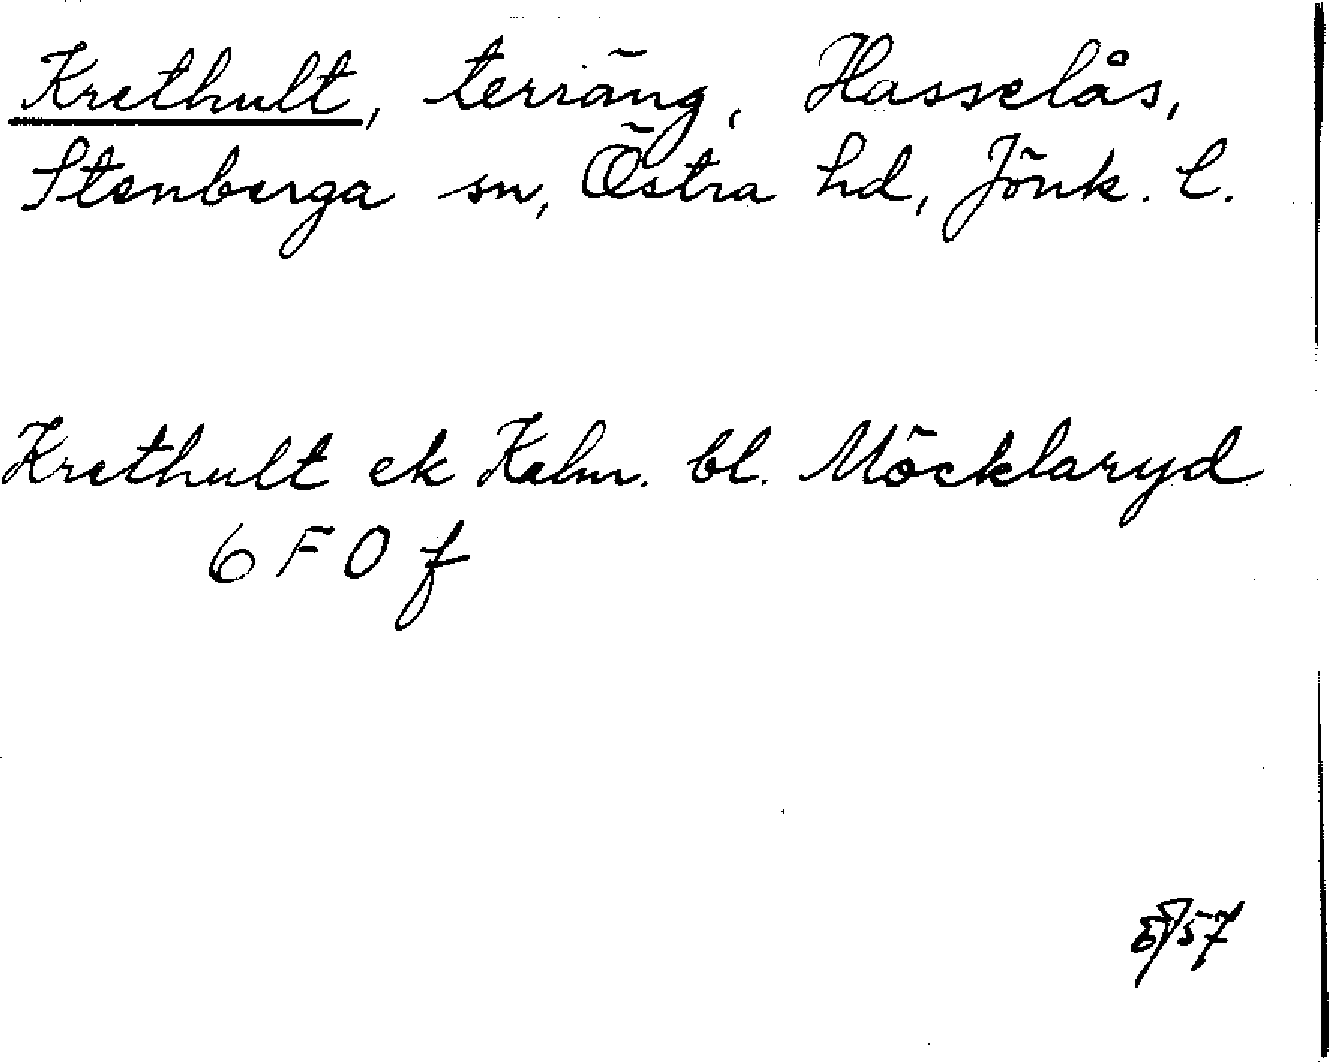 Krethult, terräng, Hasselås,
Stenberga sn, Östra hd, Jönk. l.
Krethult ek Kalm. bl. Möcklaryd
6 F O f